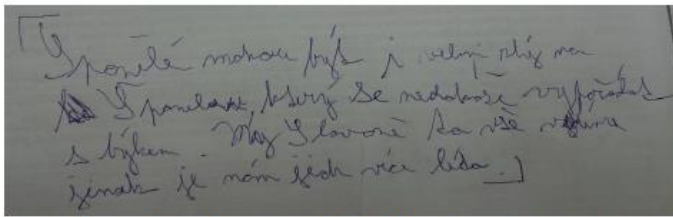 [Španělé mohou být i velmi zlý na
Španěla, který se nedokáže vypořádat
s býkem. My Slované to vše vidíme
jinak je nám jich více líto.]